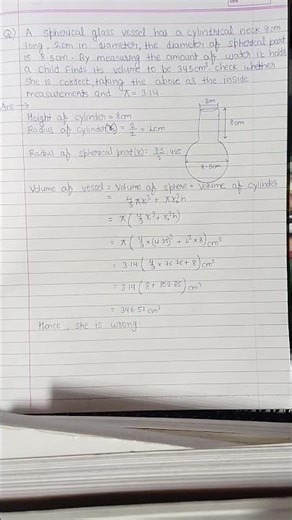 Q) A spherical glass vessel has a cylindrical neck 8cm
long, 2cm in diameter, the diameter of spherical part
is 8.5cm. By measuring the amount of water it holds
a child finds its volume to be 345cm³. check whether
she is correct, taking the above as the inside
measurements and π = 3.14
Ans →
2m
8cm
8.5cm
Height of cylinder = 8cm
Radius of cylinder(r₂) = 2/2 = 1cm
Radius of spherical part(r) = 8.5/2 = 4.25
Volume of vessel = Volume of sphere + Volume of cylinder
= 4/3 πr³ + πr₂²h
= π(4/3 r³ + r₂²h)
= π(4/3 × (4.25)³ + 1² × 8) cm³
= 3.14(4/3 × 76.76 + 8) cm³
= 3.14(8 + 102.35) cm³
= 346.51 cm³
Hence, she is wrong